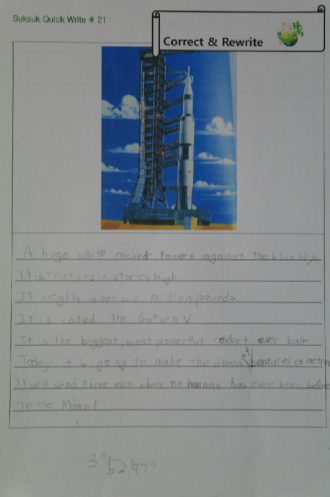 Suksuk Quick Write # 21
Correct & Rewrite
A huge white rocket towers against the blue sky.
It is thirty six stories high.
It weights over six million pounds.
It is called the Satsen V
It is the biggest, most powerful rocket ever built
Today it is going to make the dream of centuries come true
It will send three men where no human has ever been before
To the Moon!